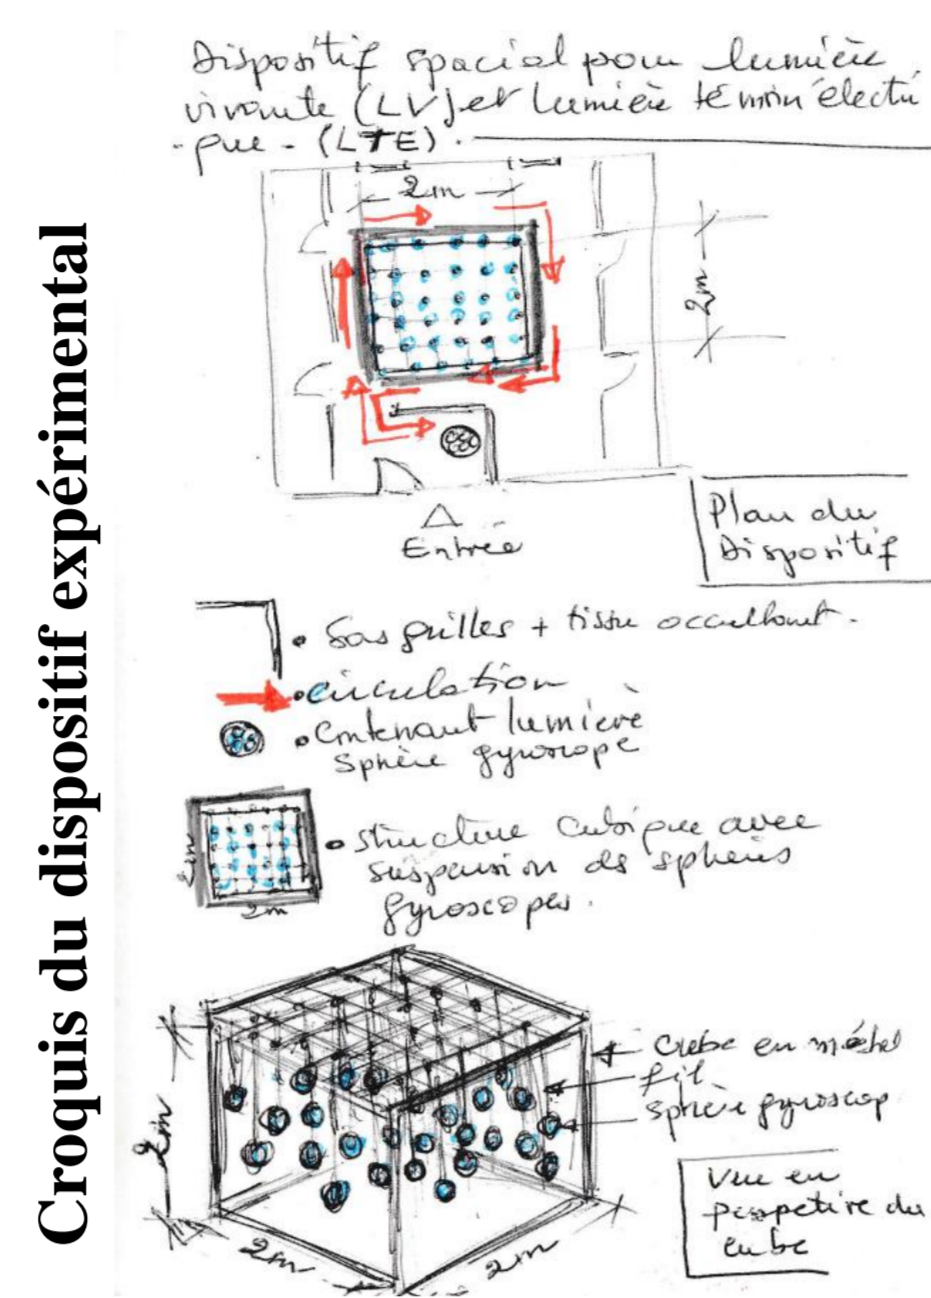 Croquis du dispositif expérimental
Dispositif spacial pour lumière
vivante (LV) et lumière témoin électri
-que - (LTE).
2m
2m
Entrée
Plan du
Dispositif
• Sas grilles + tissu occultant.
• circulation
• Contenant lumière
sphère gyroscope
2m
2m
• structure cubique avec
suspension des sphères
gyroscopes.
Cube en métal
fil
Sphère gyroscop
2m
2m
2m
Vue en
perspetive du
cube